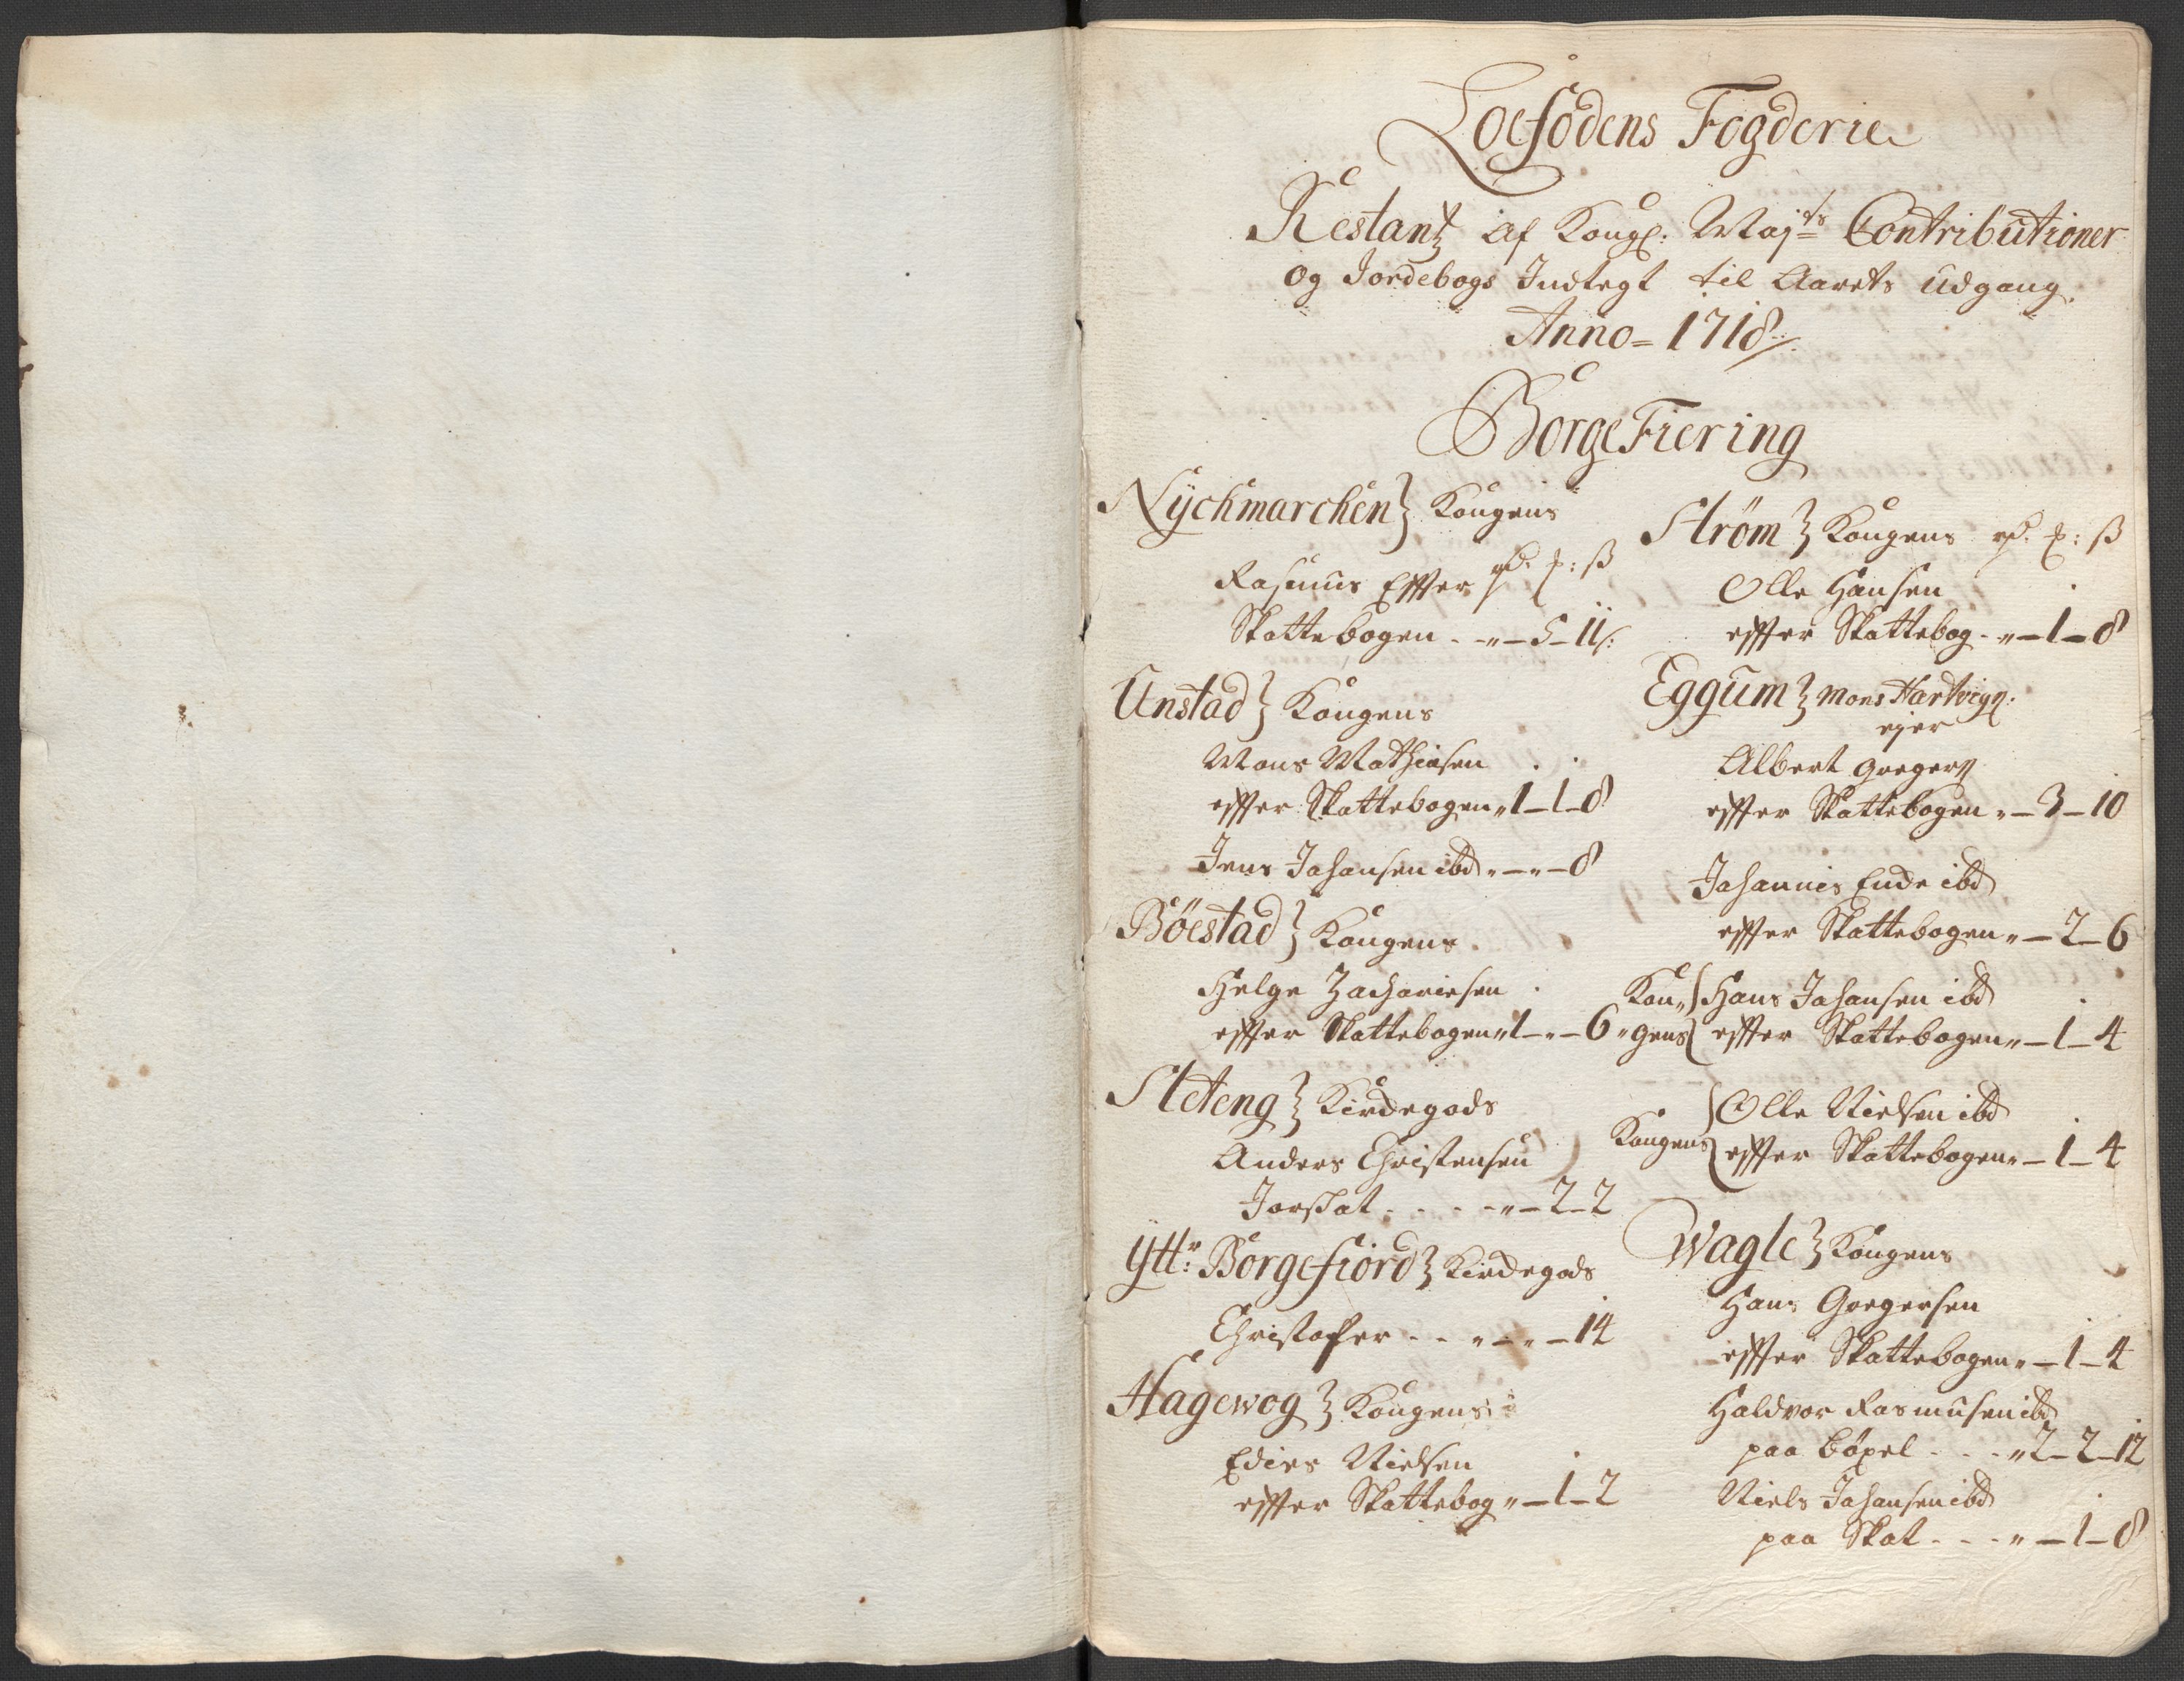 Loefodens Fogderie
Restantz af Kongl: Maj:ts Contributioner
og Jordebogs Indtegt til Aarets Udgang
Anno = 1718
Borge Fiering
Nÿchmarchen} Kongens
Rasmus Effter rd. : ß
Skattebogen - - „ – 5 – 11
Unstad} Kongens
Mons Mathiesen
effter Skattebogen „ 1 – 1 – 8
Jens Johansen ibd „ – „ – 8
Böestad} Kongens
Helge Zachariesen
effter Skattebogen „ 1 – „ – 6
Steteng} Kirchegods
Anders Christensen
Jorskat - - - - „ – 2 – 2
Ytt:r Borgefiord} Kirchegods
Christoffer - - „ – „ – 14
Hagewog} Kongens
Edies Nielsen
effter Skattebog „ – 1 – 2
Strøm} Kongens rd. : ß
Olle Hansen
effter Skattebog - „ – 1 – 8
Eggum} Mons Hartvigs:
ejer
Albert Gregers
effter Skattebogen „ – 3 – 10
Johannis Ende ibd
effter Skattebogen „ – 2 – 6
Kon„ { Hans Johansen ibd
„gens { effter Skattebogen „ – 1 – 4
{ Olle Nielsen ibd
Kongens { effter Skattebogen „ – 1 – 4
Wagle} Kongens
Hans Gregersen
effter Skattebogen „ – 1 – 4
Haldvor Rasmusen ibd
paa bøxel - - - „ 2 – 2 – 12
Niels Johansen ibd
paa Skat - - - „ – 1 – 8